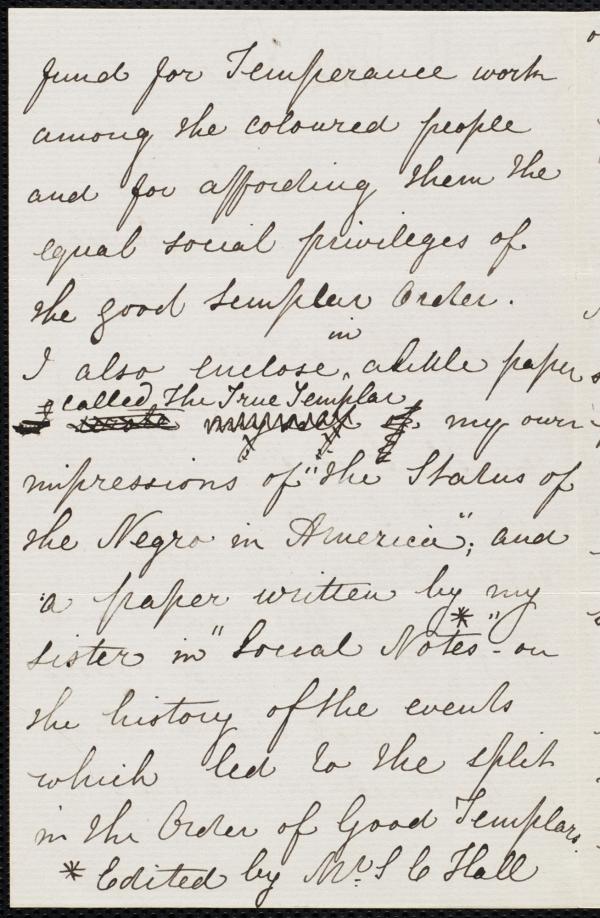 fund for Temperance work
among the coloured people
and for affording them the
equal social privileges of
the good Templar Order.
in
I also enclose, a little paper
called The True Templar
my own
impressions of "the Status of
the Negro in America"; and
a paper written by my
sister in "Social Notes*" - on
the history of the events
which led to the split
in the Order of Good Templars.
* Edited by Mr. S C Hall